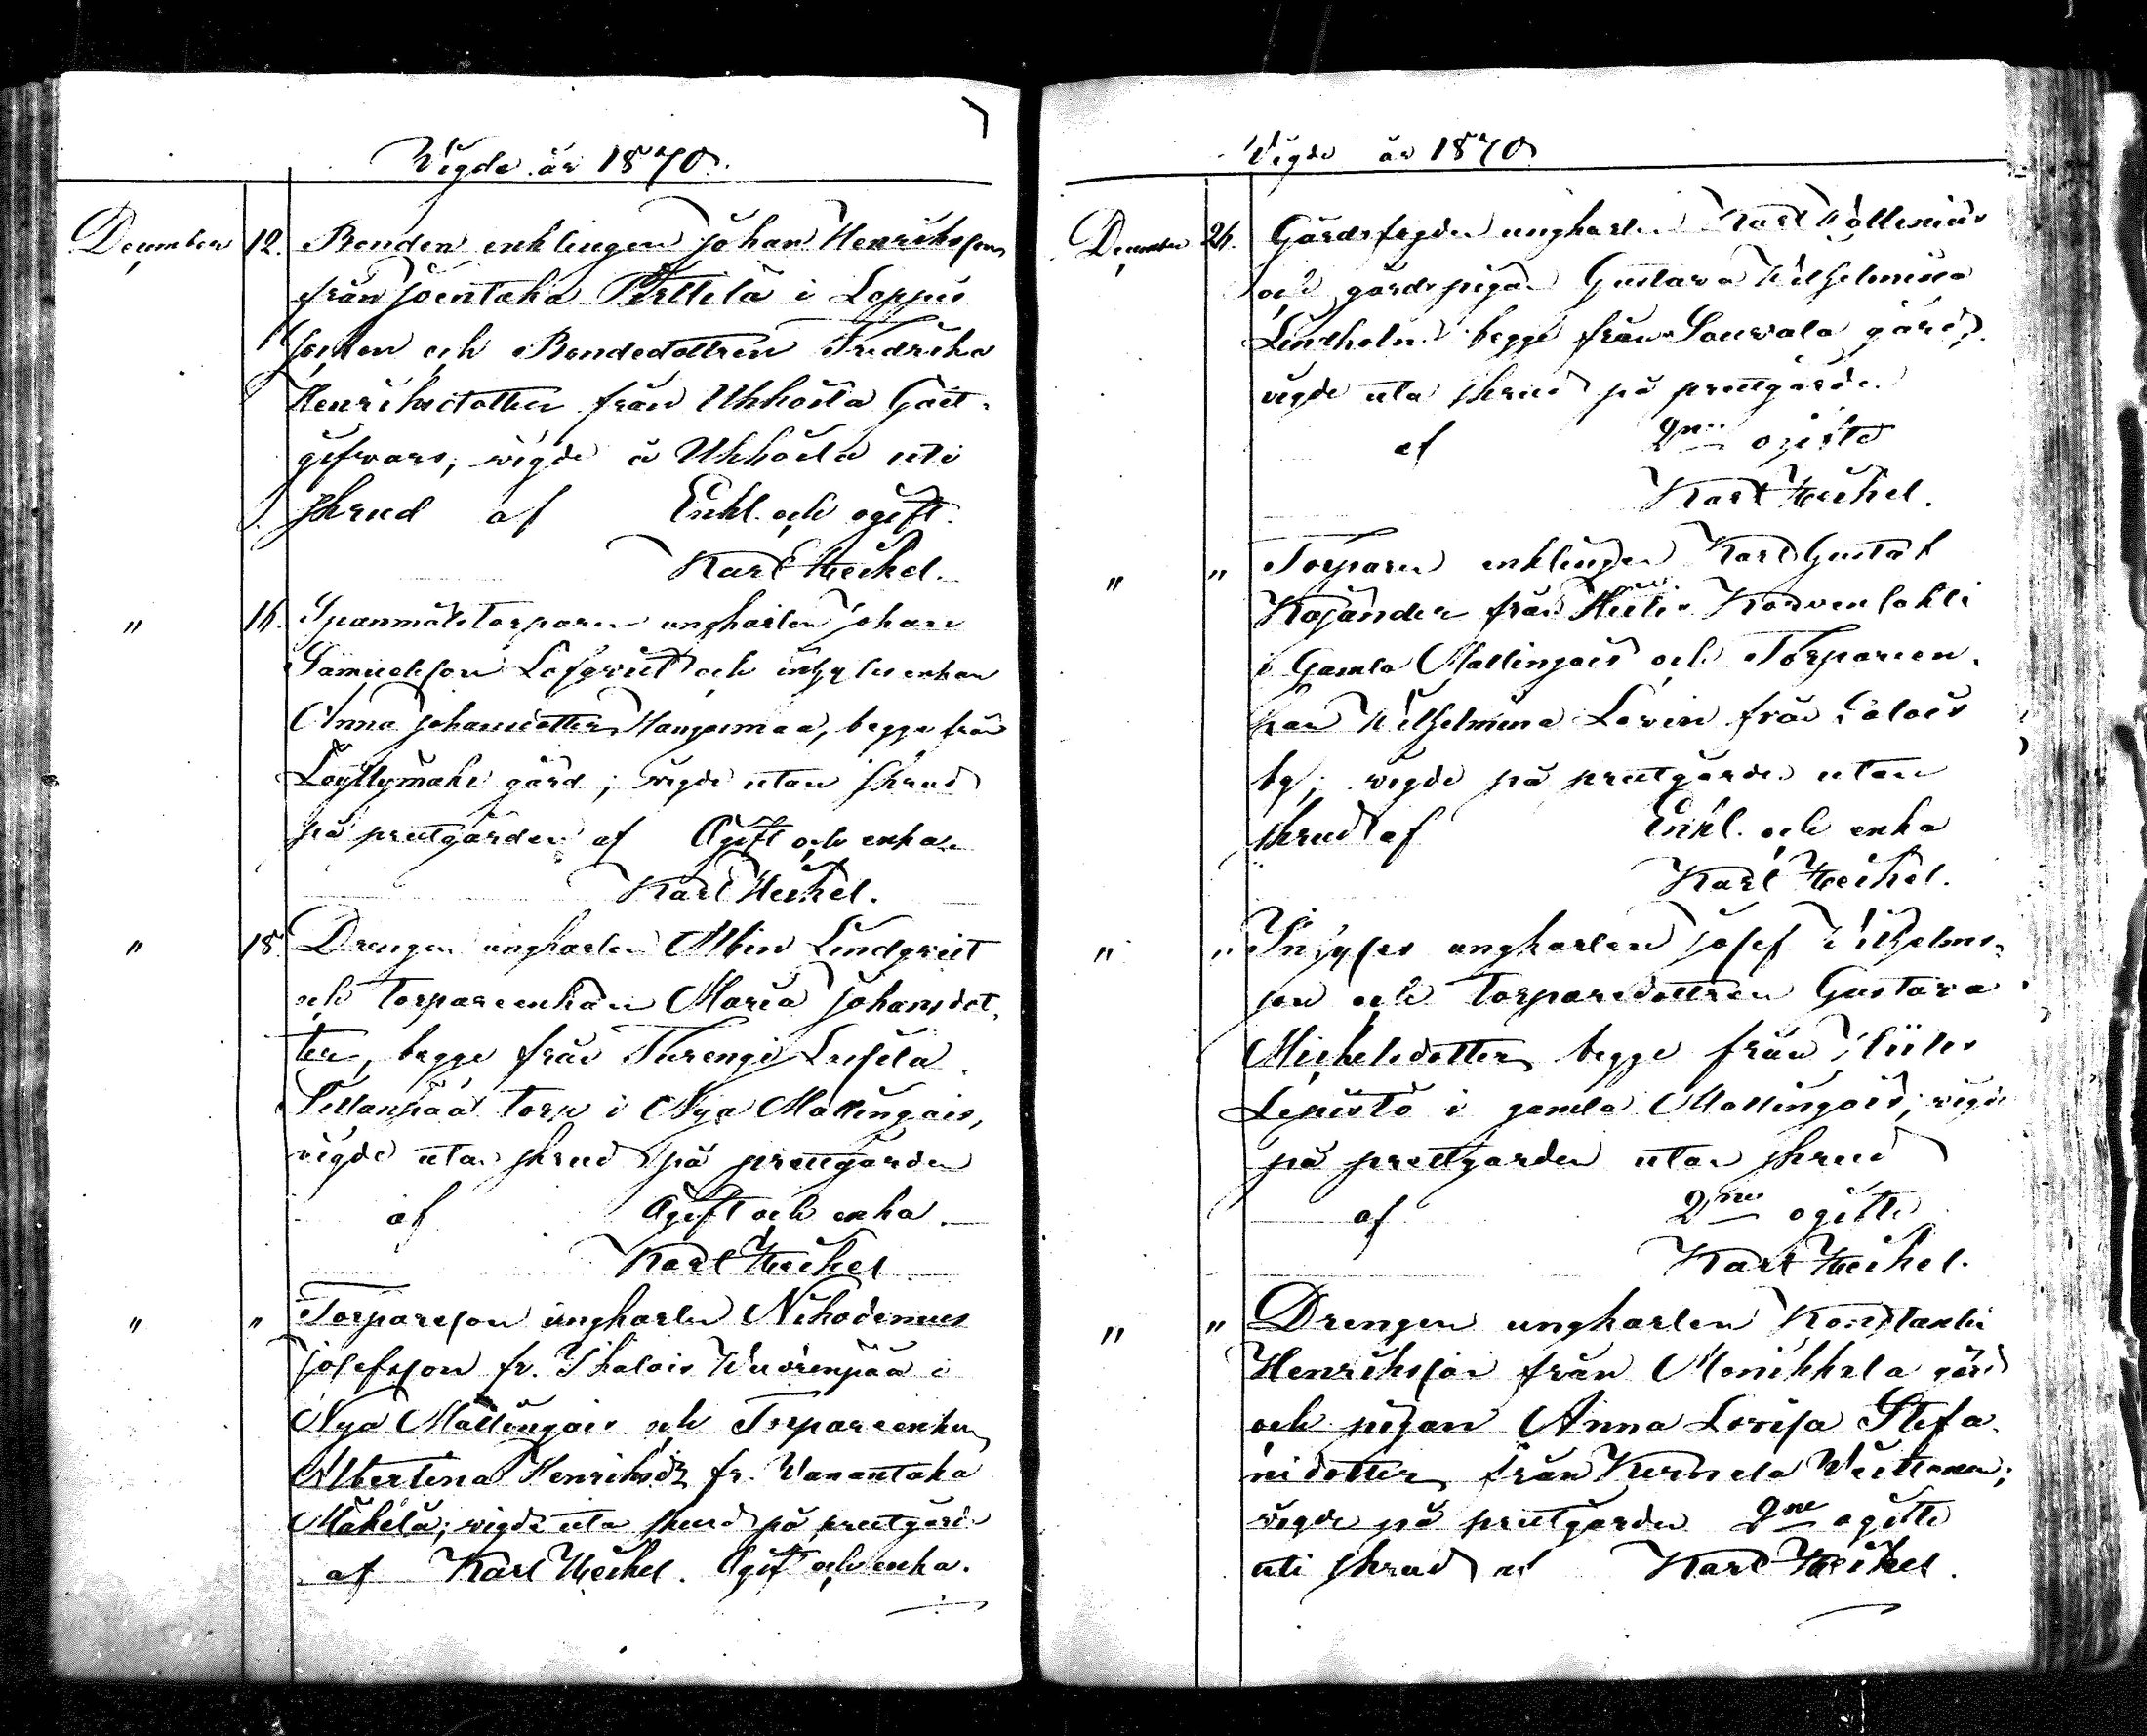 Vigde år 1870.
December 12. Bonden enklingen Johan Henriksson
från Joentaka Perttilä i Loppis
Socken och Bondedottren Fredrika
Henriksdotter från Uhkoila Gäst-
gifvars, vigde å Uhkoila uti
skrud af Enkl. och ogift.
Karl Heikel.
" 16. Spanmålstorparen ungkarlen Johan
Samuelsson Löfqvist och inhyses enkan
Anna Johansdotter Hangasmaa, begge från
Löyttymäki gård; vigde utan skrud
på prestgården af Ogift och enka.
Karl Heikel.
" 18. Drengen ungkarlen Albin Lindqvist
och torpareenkan Maria Johansdot-
ter, begge från Turengi Lusila
Sillanpää torp i Nya Mallingais,
vigde utan skrud på prestgården
af Ogift och enka.
Karl Heikel
" " Torpareson ungkarlen Nikodemus
Josefsson fr. Ihalais Wuorenpää i
Nya Mallingais och Torpareenkan
Albertina Henriksdr fr. Wanantaka
Mäkelä; vigde utan skrud på prestgård.
af Karl Heikel. Ogift och enka.
Vigde år 1870
December 26. Gårdsfogden ungkarlen Karl
och gårdspigan Gustava Wilhelmina
Lindholm begge från Sauvala gård,
vigde utan skrud på prestgården
af 2ne ogifta
Karl Heikel.
" " Torparen enklingen Karl Gustaf
Kajander från Korvenlahti
i Gamla Mallingais och Torpareen-
kan Wilhelmina Levin från
by; vigde på prestgården utan
skrud af Enkl. och enka
Karl Heikel.
" " Inhyses ungkarlen Josef Wilhelms-
son och torparedottren Gustava
Michelsdotter begge från
Lepistö i gamla Mallingais; vigde
på prestgården utan skrud
af 2ne ogifte
Karl Heikel.
" " Drengen ungkarlen Konstantin
Henriksson från Monikkala gård
och pigan Anna Lovisa Stefa-
nidotter från Kernala
vigde på prestgården 2ne ogifte
uti skrud af Karl Heikel.